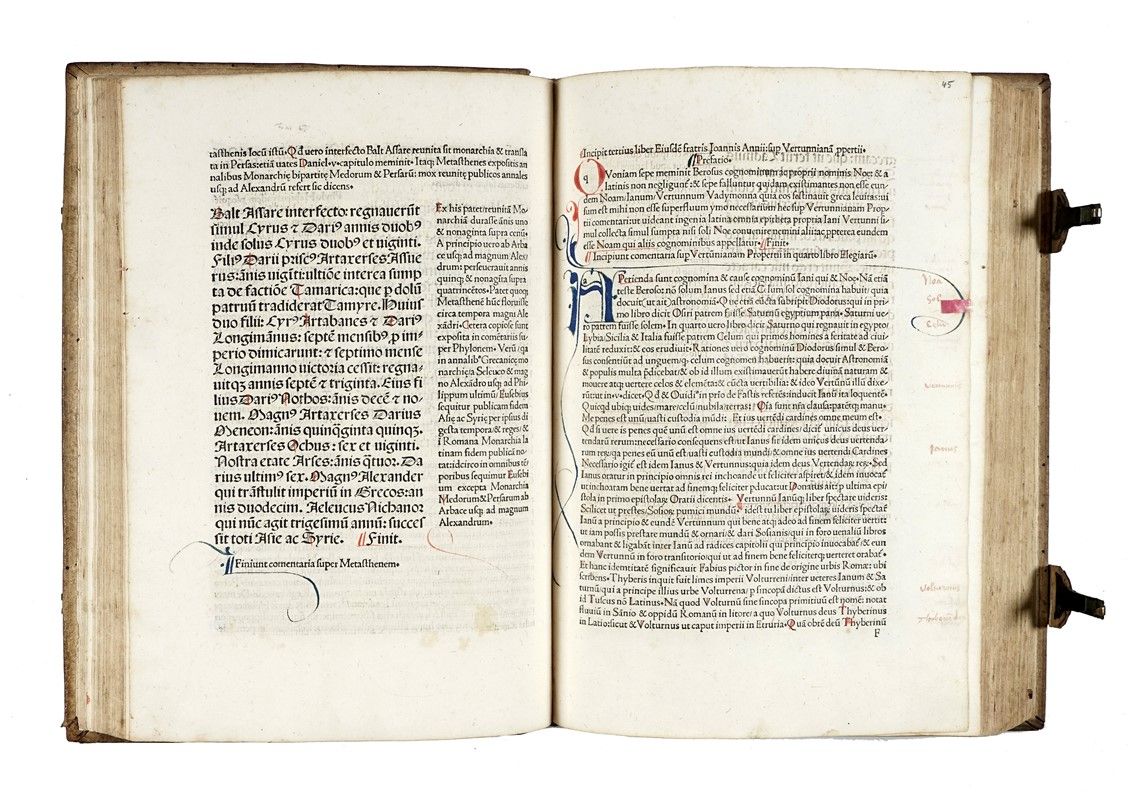 tasthenis locū istū·Qd uero interfecto Balt Assare reunita sit monarchia & transla
ta in Persas:etiā uates Daniel·v·capitulo meminit· Itaq; Metasthenes expositis an
nalibus Monarchię bipartitę Medorum & Persarū: mox reunitę publicos annales
usq; ad Alexandrū refert sic dicens·
Balt Assare interfecto: regnauerūt
simul Cyrus ⁊ Dariꝰ annis duobꝰ
inde solus Cyrus duobꝰ et uiginti.
Filiꝰ Darii priscꝰ Artaxerses Assue
rus:ānis uigīti:ultiōe interea sump
ta de factiōe Tamarica:que p dolū
patrum tradiderat Tamyre. Huius
duo filii: Cyrꝰ Artabanes ⁊ Dariꝰ
Longimanus: septē mensibꝰ p im-
perio dimicarunt: ⁊ septimo mense
Longimanno uictoria cessit: regna-
uitq; annis septē ⁊ triginta. Eius fi
lius Dariꝰ Nothos: ānis decē ⁊ no-
uem. Magnꝰ Artaxerses Darius
Mencon: ānis quinq̄ginta quinq;.
Artaxerses Ochus: sex et uiginti.
Nostra etate Arses: ānis q̄tuor. Da
rius ultimꝰ sex. Magnꝰ Alexander
qui trāstulit imperiū in Grecos: an
nis duodecim. Aeleucus Nichano:
qui nūc agit trigesimū annū: succes
sit toti Asie ac Syrie. Finit.
Finiunt comentaria super Metasthenem·
Ex his patet/reunitā Mo-
narchiā durasse ānis uno
& nonaginta supra centū·
A principio uero ab Arba
ce usq; ad magnum Alex
drum: perseuerauit annis
quinq; & nonagīta supra
quatrīcētos· Patet quoq;
Metasthenē hūc floruisse
circa tempora magni Ale
xādri·Cetera copiose sunt
exposita in cōmētariis su-
per Phylonem· Verū /qa
in annalibꝰ Grecanicę mo
narchię a Seleuco & mag
no Alexādro usq; ad Phi-
lippum ultimū/ Eusebius
sequitur publicam fidem
Asię ac Syrię per ipsus di
gesta tempora & reges/ &
ī Romana Monarchia la
tinam fidem publicā no-
tat:idcirco in omnibus tē
poribus sequimur Eusebi
um excepta Monarchia
Medorum & Persarum ab
Arbace usq; ad magnum
Alexandrum·
45
Incipit tertius liber Eiusdē fratris Ioannis Annii: sup Vertunianā ppertii·
Prefatio·
QVoniam sepe meminit Berosus cognominum ac proprii nominis Noe: & a
latinis non negligunt: & sepe falluntur quidam existimantes non esse eun-
dem Noam/Ianum/Vertunnum Vadymona
sum est mihi non esse superfluum ymo necessarium hęc sup Vertunnianam Prop-
tii comentari: ut uideant ingenia latina omnia epitheta propria Iani Vertunni si-
mul collecta simul sumpta nisi soli Noe conuenire nemini alii: ac ppterea eundem
esse Noam qui aliis cognominibus appellatur· Finit·
Incipiunt comentaria sup Vertūnianam Propertii in quarto libro Elegiarū·
APerienda sunt cognomina & cause cognominū Iani qui & Noe·Nā etiā
teste Beroso: nō solum Ianus sed etiā Celum & sol cognomina habuit: quia
docuit( ut ait )astronomiā· Que etiā dicta subripit Diodorus: qui in pri-
mo libro dicit Osiri patrem fuisse Saturnū egyptium· Saturni ue-
ro patrem fuisse solem· In quarto uero libro dicit Saturno qui regnauit in egypto/
Lybia/Sicilia & Italia fuisse patrem Celum qui primos homines a feritate ad ciui-
litatē reduxit: & eos erudiuit· Rationes uero cognominū Diodorus simul & Bero-
sus consentiūt ad unguem: q; celum cognomen habuerit: quia docuit Astronomiā
& populis multa pdicebat/& ob id illum existimauerūt habere diuinā naturam &
mouere atq; uertere celos & elemēta: & cūcta uertibilia: & ideo Vertūnū illū dixe-
rūt: ut in·v·dicet· Qd & Ouidiꝰ in prīo de Fastis referēs: inducit Ianū ita loquentē·
Quicqd ubiq; uides/mare/celū/nubila/terras: Oīa sunt nra clausa: patētq; manu·
Me penes est unū/uasti custodia mūdi: Et ius uertēdi cardines omne meum est·
Qd si uere is penes quē unū est omne ius uertendi cardines/dicit unicus deus uer-
tendarū rerum: necessario consequens est/ut Ianus sit idem unicus deus uertenda-
rum req; qa penes eū unū est uasti custodia mundi: & omne ius uertendi Cardines
Necessario igit est idem Ianus & Vertunnus: quia idem deus Vertendaꝝ reꝝ· Sed
Ianus oratur in principio omnis rei inchoande ut feliciter aspiret: & idem inuocat
ut inchoatam bene uertat ad finemq; feliciter pducat: ut Donatus ait: p ultima epi
stola in primo epistolaꝝ Oratii dicentis· Vertunnū Ianūq; liber spectare uideris:
Scilicet ut prestes/Sosioꝝ pumici mundū· idest tu liber epistolaꝝ uideris spectare
Ianū a principio & eundē Vertunnum qui bene atq; adeo ad finem feliciter uertit:
ut iam possis prestare mundū & ornari/ & dari Sosianis/qui in foro uenaliū libros
ornabant & ligabāt inter Ianū ad radices capitolii qui principio inuocabat/ & eun
dem Vertunnū in foro transitorio: qui ut ad finem bene feliciterq; uerteret orabat·
Et hanc identitatē significauit Fabius pictor in fine de origine urbis Romæ: ubi
scribens·Thyberis inquit fuit limes imperii Volturreni/inter ueteres Ianum & Sa
turnū: qui a principe illius urbe Volturrena/ p sincopā dictus est Volturnus: & ob
id Tuscus nō Latinus· Nā quod Volturnū sine sincopa primitiuū est nomē: notat
fluuiū in Sānio & oppidū Romanū in litore: a quo Volturnus deus Thyberinus
in Latio: sicut & Volturnus ut caput imperii in Etruria· Quā obrē deū Thyberinū
F
Noa
Sol
Celū
Vertunnus
Janus
Volturnus